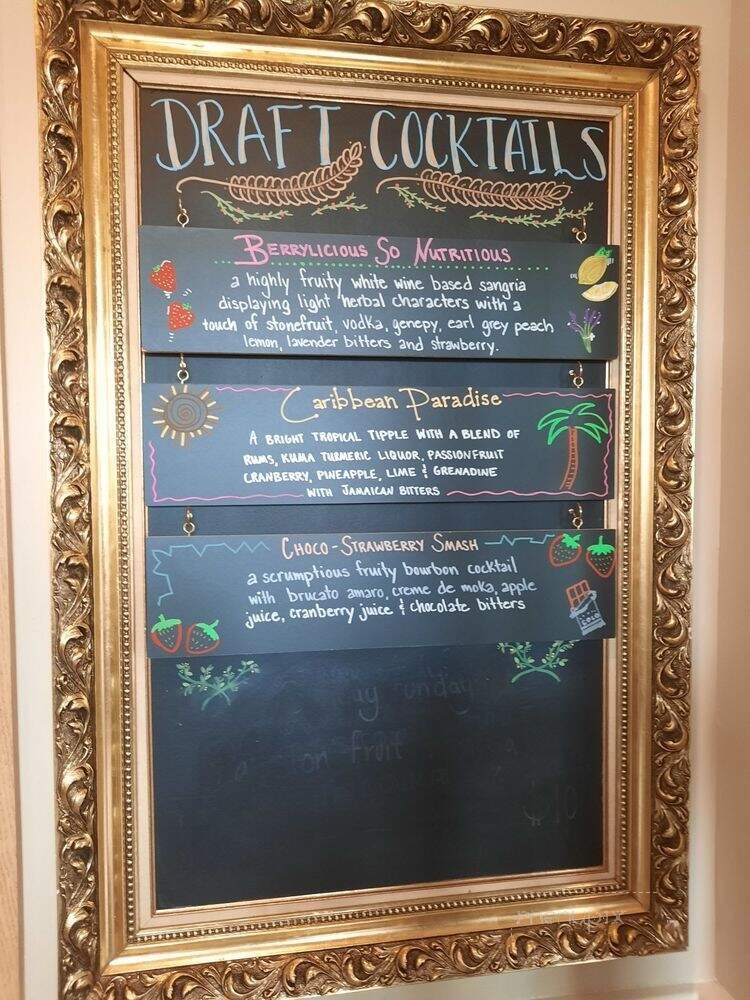 DRAFT COCKTAILS
BERRYLICIOUS SO NUTRITIOUS
a highly fruity white wine based sangria
displaying light herbal characters with a
touch of stonefruit, vodka, genepy, earl grey peach
lemon, lavender bitters and strawberry.
Caribbean Paradise
A BRIGHT TROPICAL TIPPLE WITH A BLEND OF
RUMS, KUMA TURMERIC LIQUOR, PASSIONFRUIT
CRANBERRY, PINEAPPLE, LIME & GRENADINE
WITH JAMAICAN BITTERS
CHOCO-STRAWBERRY SMASH
a scrumptious fruity bourbon cocktail
with brucato amaro, creme de moka, apple
juice, cranberry juice & chocolate bitters
COCO
fruit
$10